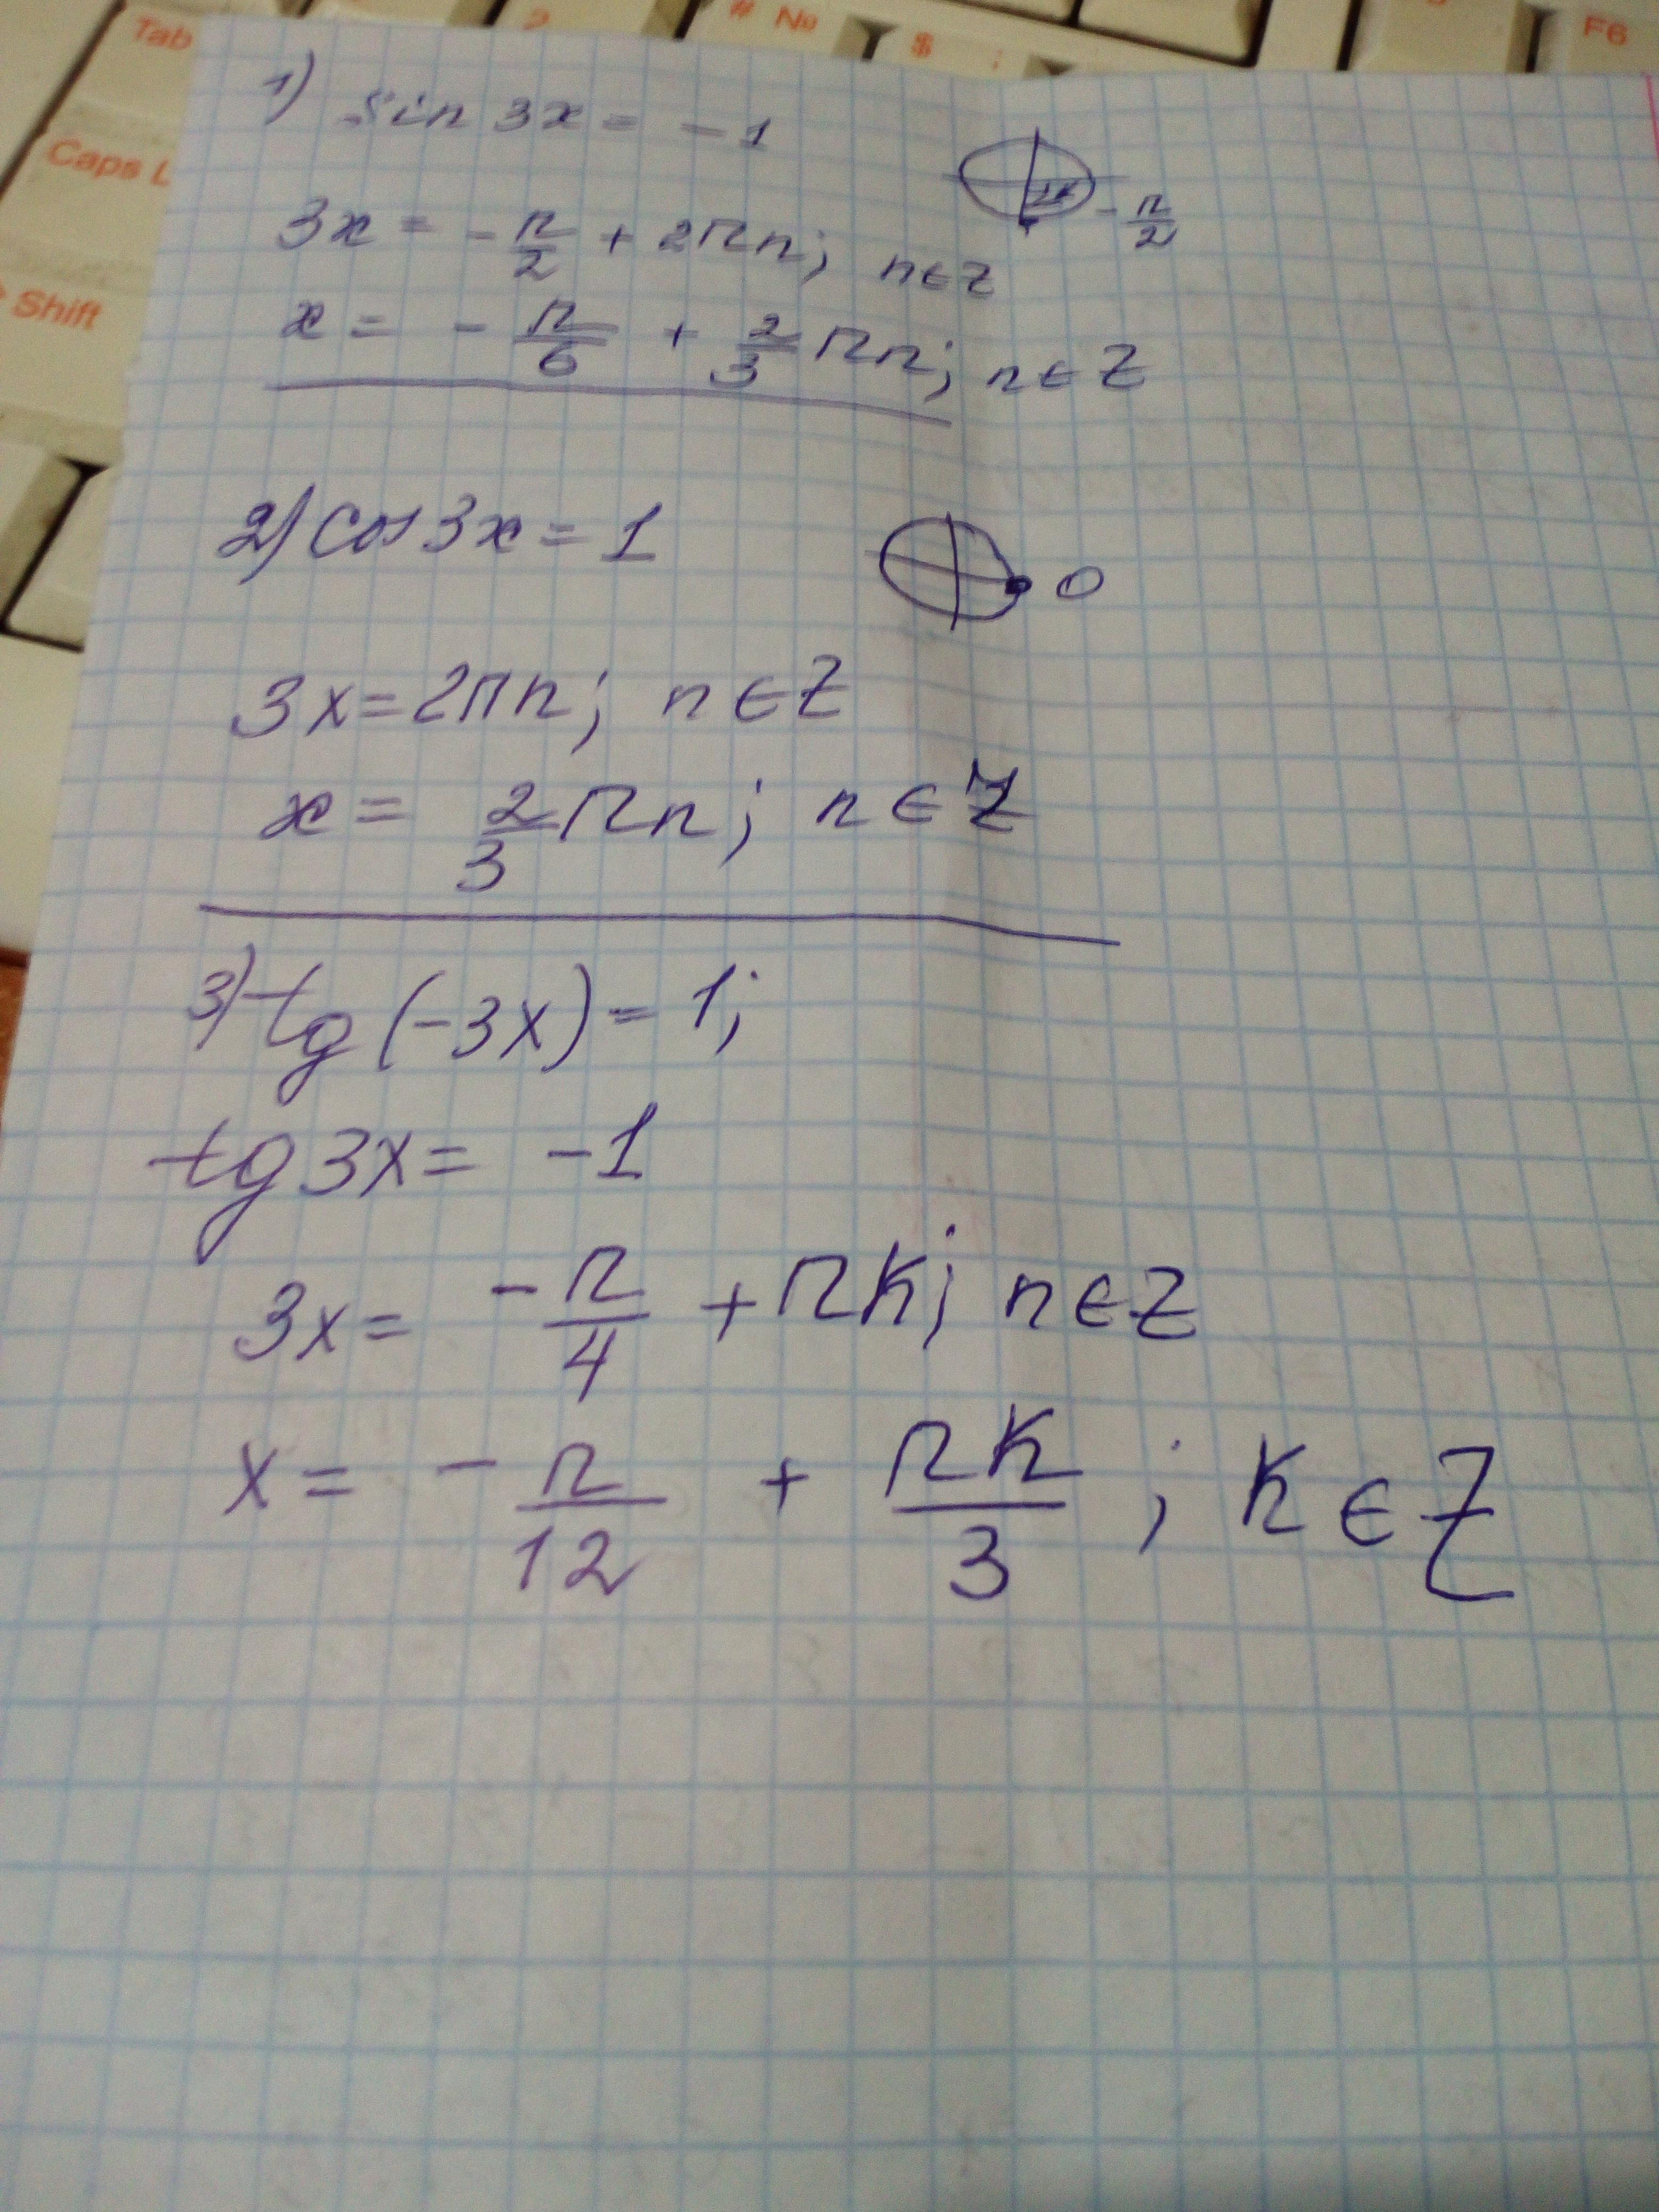 Tab
2
# №
$ ;
F6
Caps L
Shift
1) sin 3x = -1
-π/2
3x = -π/2 + 2πn; n∈Z
x = -π/6 + 2/3 πn; n∈Z
2) cos 3x = 1
0
3x = 2πn; n∈Z
x = 2/3 πn; n∈Z
3) tg (-3x) = 1;
tg 3x = -1
3x = -π/4 + πk; n∈Z
x = -π/12 + πk/3 ; k∈Z